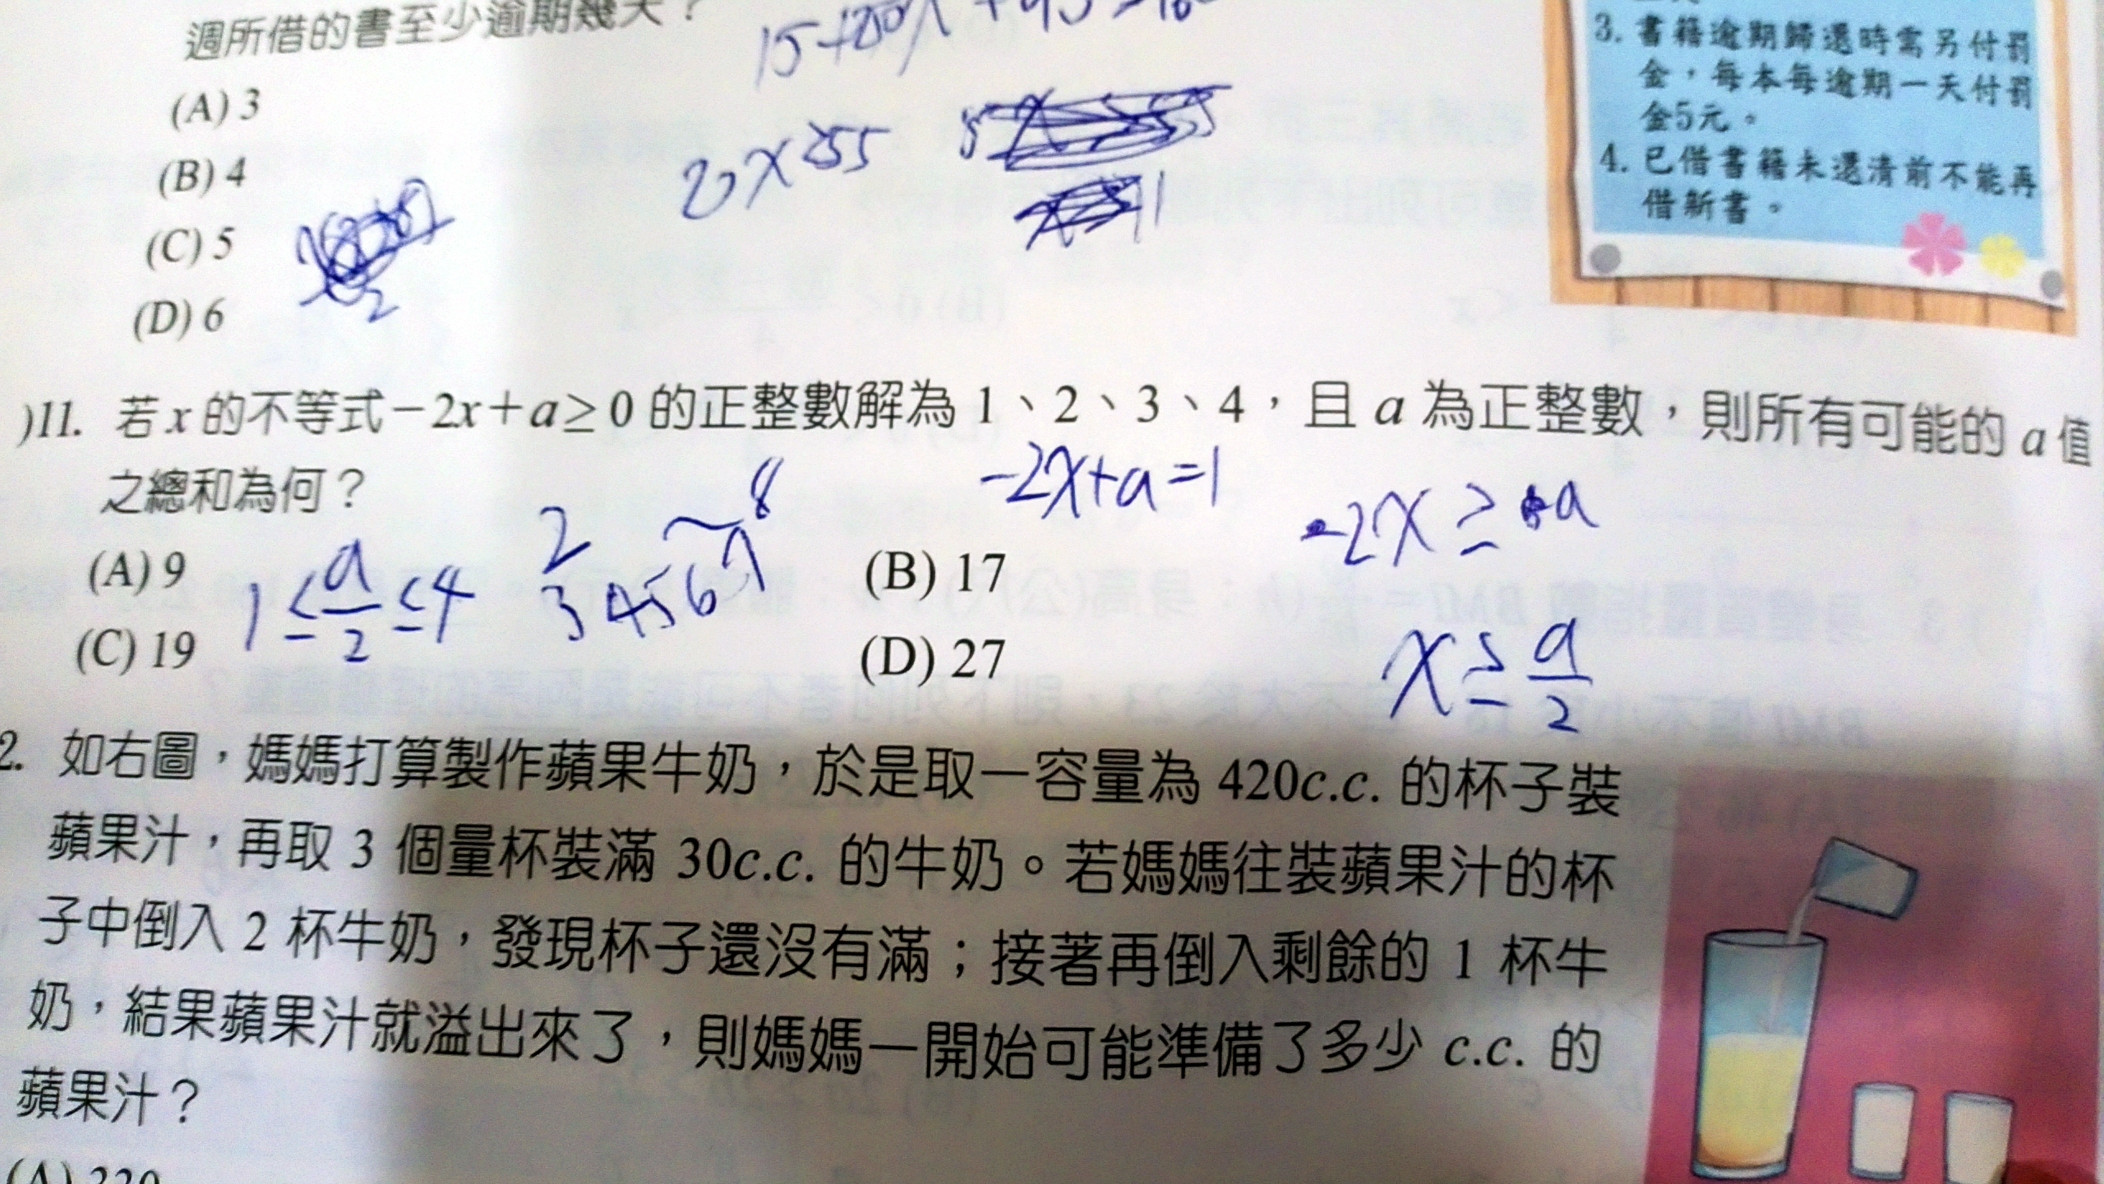 週所借的書至少逾期幾天？
(A) 3
(B) 4
(C) 5
(D) 6
2x≥55
3. 書籍逾期歸還時需另付罰
金，每本每逾期一天付罰
金5元。
4. 已借書籍未還清前不能再
借新書。
)11. 若 x 的不等式－2x＋a≥0 的正整數解為 1、2、3、4，且 a 為正整數，則所有可能的 a 值
之總和為何？
-2x+a=1
-2x≥-a
(A) 9
(B) 17
(C) 19
(D) 27
1≤a/2≤4
2～8
3 4 5 6 7
x≤a/2
2. 如右圖，媽媽打算製作蘋果牛奶，於是取一容量為 420c.c. 的杯子裝
蘋果汁，再取 3 個量杯裝滿 30c.c. 的牛奶。若媽媽往裝蘋果汁的杯
子中倒入 2 杯牛奶，發現杯子還沒有滿；接著再倒入剩餘的 1 杯牛
奶，結果蘋果汁就溢出來了，則媽媽一開始可能準備了多少 c.c. 的
蘋果汁？